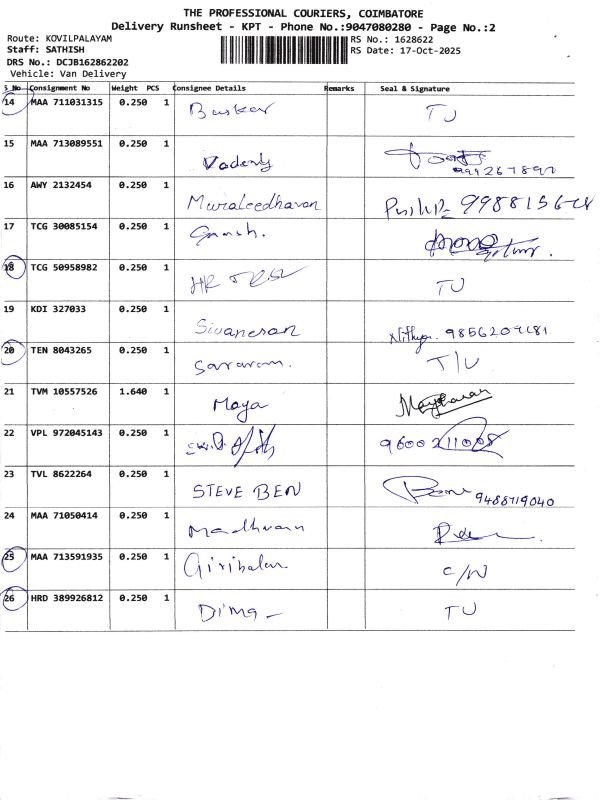 THE PROFESSIONAL COURIERS, COIMBATORE
Delivery Runsheet - KPT - Phone No.:9047080280 - Page No.:2
Route: KOVILPALAYAM RS No.: 1628622
Staff: SATHISH RS Date: 17-Oct-2025
DRS No.: DCJB162862202
Vehicle: Van Delivery
S No Consignment No Weight PCS Consignee Details Remarks Seal & Signature
14 MAA 711031315 0.250 1 Baskar TU
15 MAA 713089551 0.250 1
16 AWY 2132454 0.250 1 Muraleedharan
17 TCG 30085154 0.250 1 Ganesh.
18 TCG 50958982 0.250 1 HR TU
19 KDI 327033 0.250 1 Sivanesan Nithya.
20 TEN 8043265 0.250 1 T/U
21 TVM 10557526 1.640 1 Maya
22 VPL 972045143 0.250 1
23 TVL 8622264 0.250 1 STEVE BEN 9488719040
24 MAA 71050414 0.250 1
25 MAA 713591935 0.250 1 C/N
26 HRD 389926812 0.250 1 TU